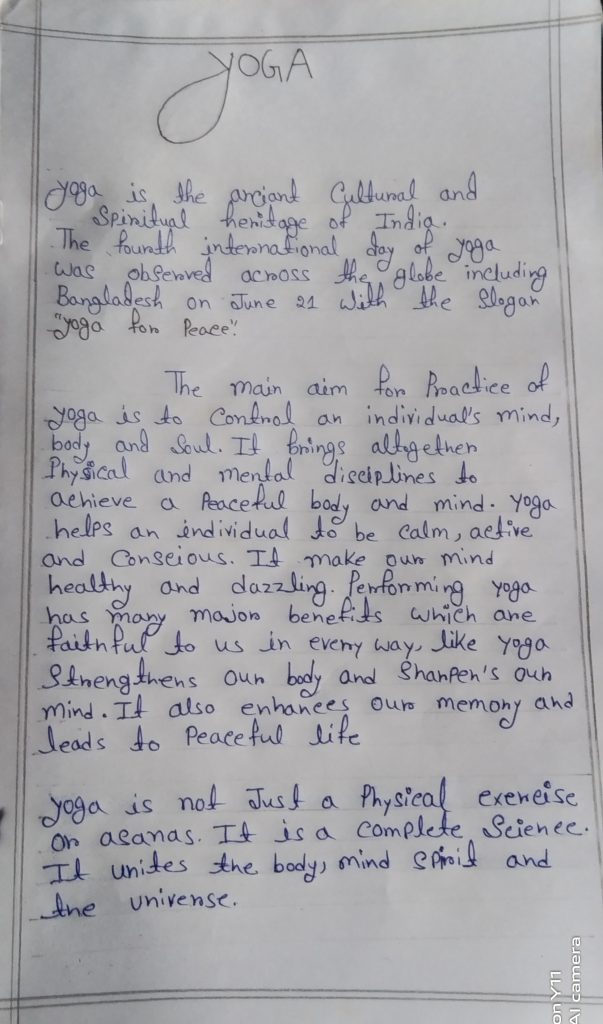 YOGA
Yoga is the anciant Cultural and
Spiritual heritage of India.
The fourth international day of yoga
was observed across the globe including
Bangladesh on June 21 with the Slogan
"Yoga for Peace".
The main aim for Practice of
yoga is to Control an individual's mind,
body and Soul. It brings altogether
Physical and mental disciplines to
achieve a Peaceful body and mind. Yoga
helps an individual to be calm, active
and Conscious. It make our mind
healthy and dazzling. Performing yoga
has many major benefits which are
faithful to us in every way, like Yoga
Strengthens our body and Sharpen's our
mind. It also enhances our memory and
leads to Peaceful life
Yoga is not Just a Physical exercise
or asanas. It is a complete Science.
It unites the body, mind spirit and
the universe.
on Y11
AI camera